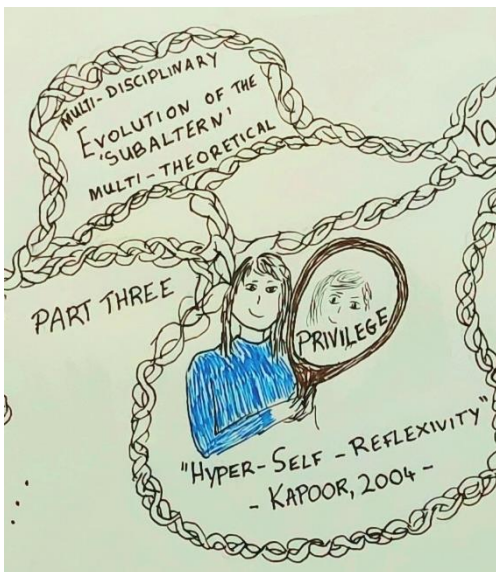 MULTI-DISCIPLINARY
EVOLUTION OF THE
'SUBALTERN'
MULTI-THEORETICAL
VO
PART THREE
PRIVILEGE
"HYPER-SELF-REFLEXIVITY"
- KAPOOR, 2004 -